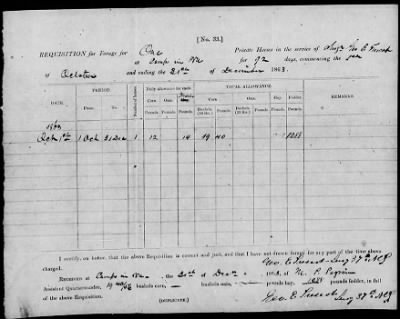 [No. 33.]
REQUISITION for Forage for One Private Horses in the service of Surg. Geo E Trescot
at Camp in Va for 92 days, commencing the 1st
of October and ending the 31st of December 1863.
DATE. PERIOD. Number of horses. Daily allowance to each. TOTAL ALLOWANCE. REMARKS.
From. To. Corn. Oats. Fodder. Corn. Oats. Hay. Fodder.
Pounds. Pounds. Pounds. Bushels. Pounds. Bushels. Pounds. Pounds. Pounds.
1863
Oct 1st 1 Oct 31 Dec 1 12 14 19 40 1288
I certify, on honor, that the above Requisition is correct and just, and that I have not drawn forage for any part of the time above
charged.
Geo. E. Trescot Surg 37th
RECEIVED at Camp in Va, the 31st of Dec 1863, of
Assistant Quartermaster, 19 40/56 bushels corn, bushels oats, pounds hay, 1288 pounds fodder, in full of the
above Requisition.
[DUPLICATE.]
Geo. E. Trescot Surg 37th